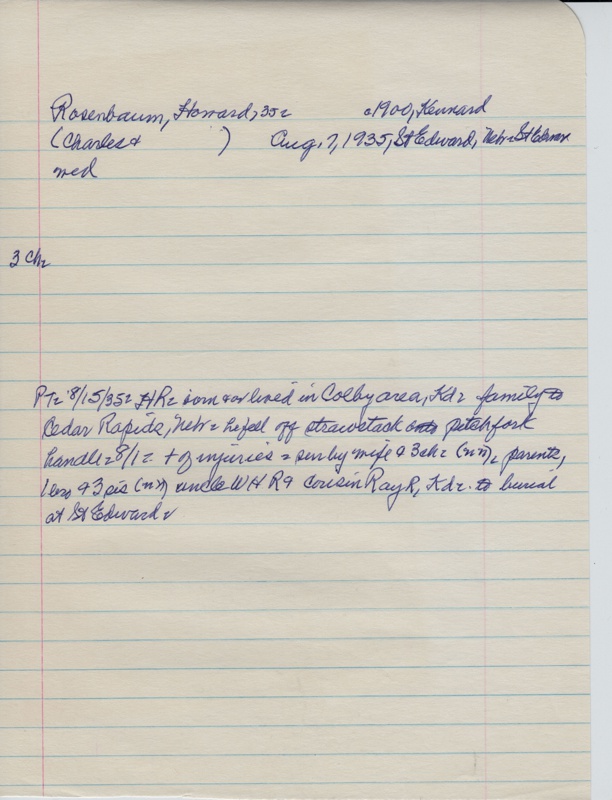 Rosenbaum, Howard, 35- c1900, Kennard
(Charles + ) Aug. 7, 1935, St Edward, Nebr - St Edward
med
3 Ch-
PT- 8/15/35- HR- born + or lived in Colby area, Kd- family to
Cedar Rapids, Nebr - he fell off strawstack onto pitchfork
handle - 8/1 - + of injuries - sur by wife + 3 ch- (nn), parents,
1 bro + 3 sis (nn) uncle W H R + cousin Ray R, Kd - to burial
at St Edward